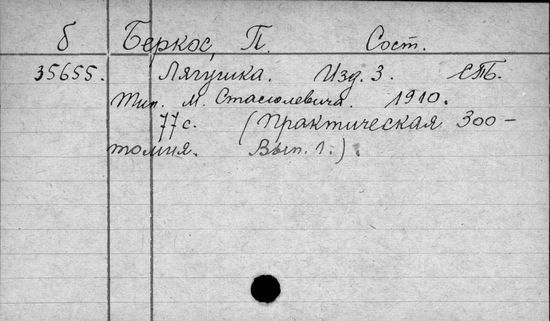 б Беркос, П. Сост.
35655. Лягушка. Изд. 3. СПб.
Тип. М. Стасюлевича. 1910.
77 с. (Практическая зоо-
томия. Вып. 1.).